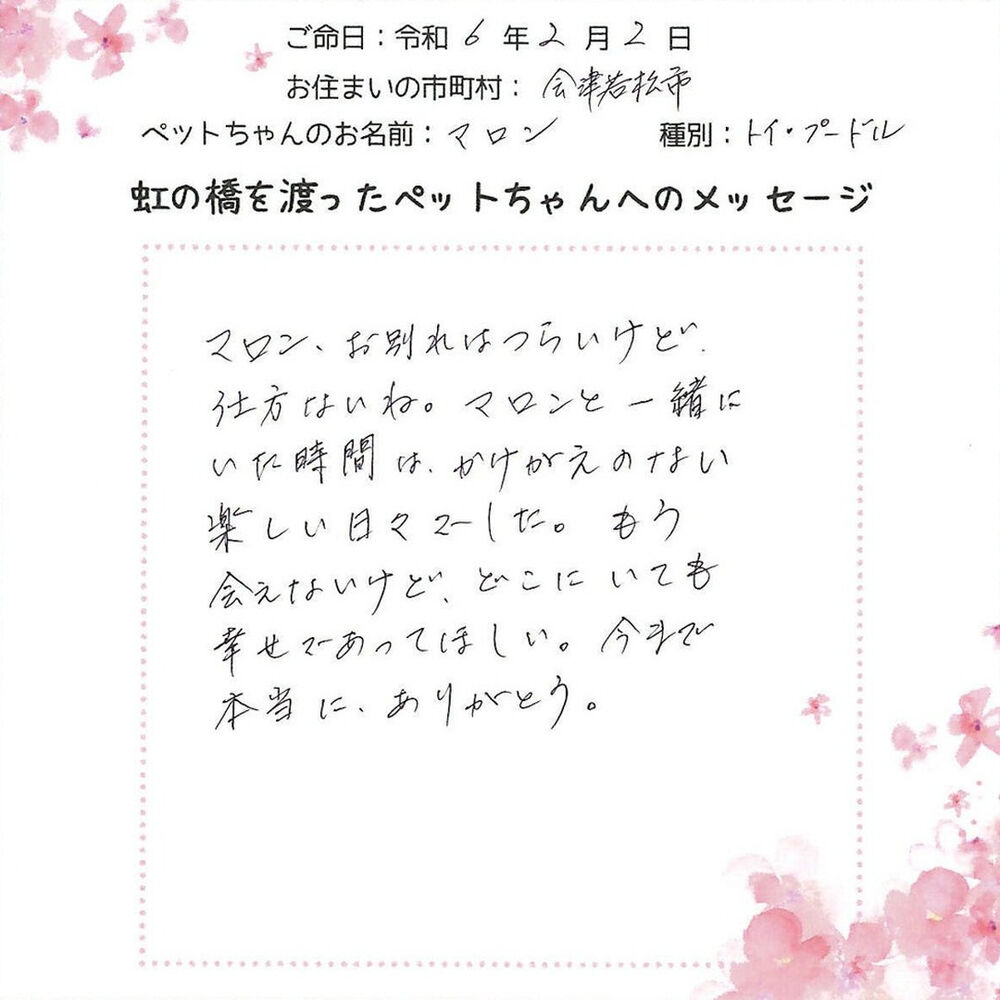 ご命日：令和 6 年 2 月 2 日
お住まいの市町村： 会津若松市
ペットちゃんのお名前：マロン 種別：トイ・プードル
虹の橋を渡ったペットちゃんへのメッセージ
マロン、お別れはつらいけど、
仕方ないね。マロンと一緒に
いた時間は、かけがえのない
楽しい日々でした。もう
会えないけど、どこにいても
幸せであってほしい。今まで
本当に、ありがとう。